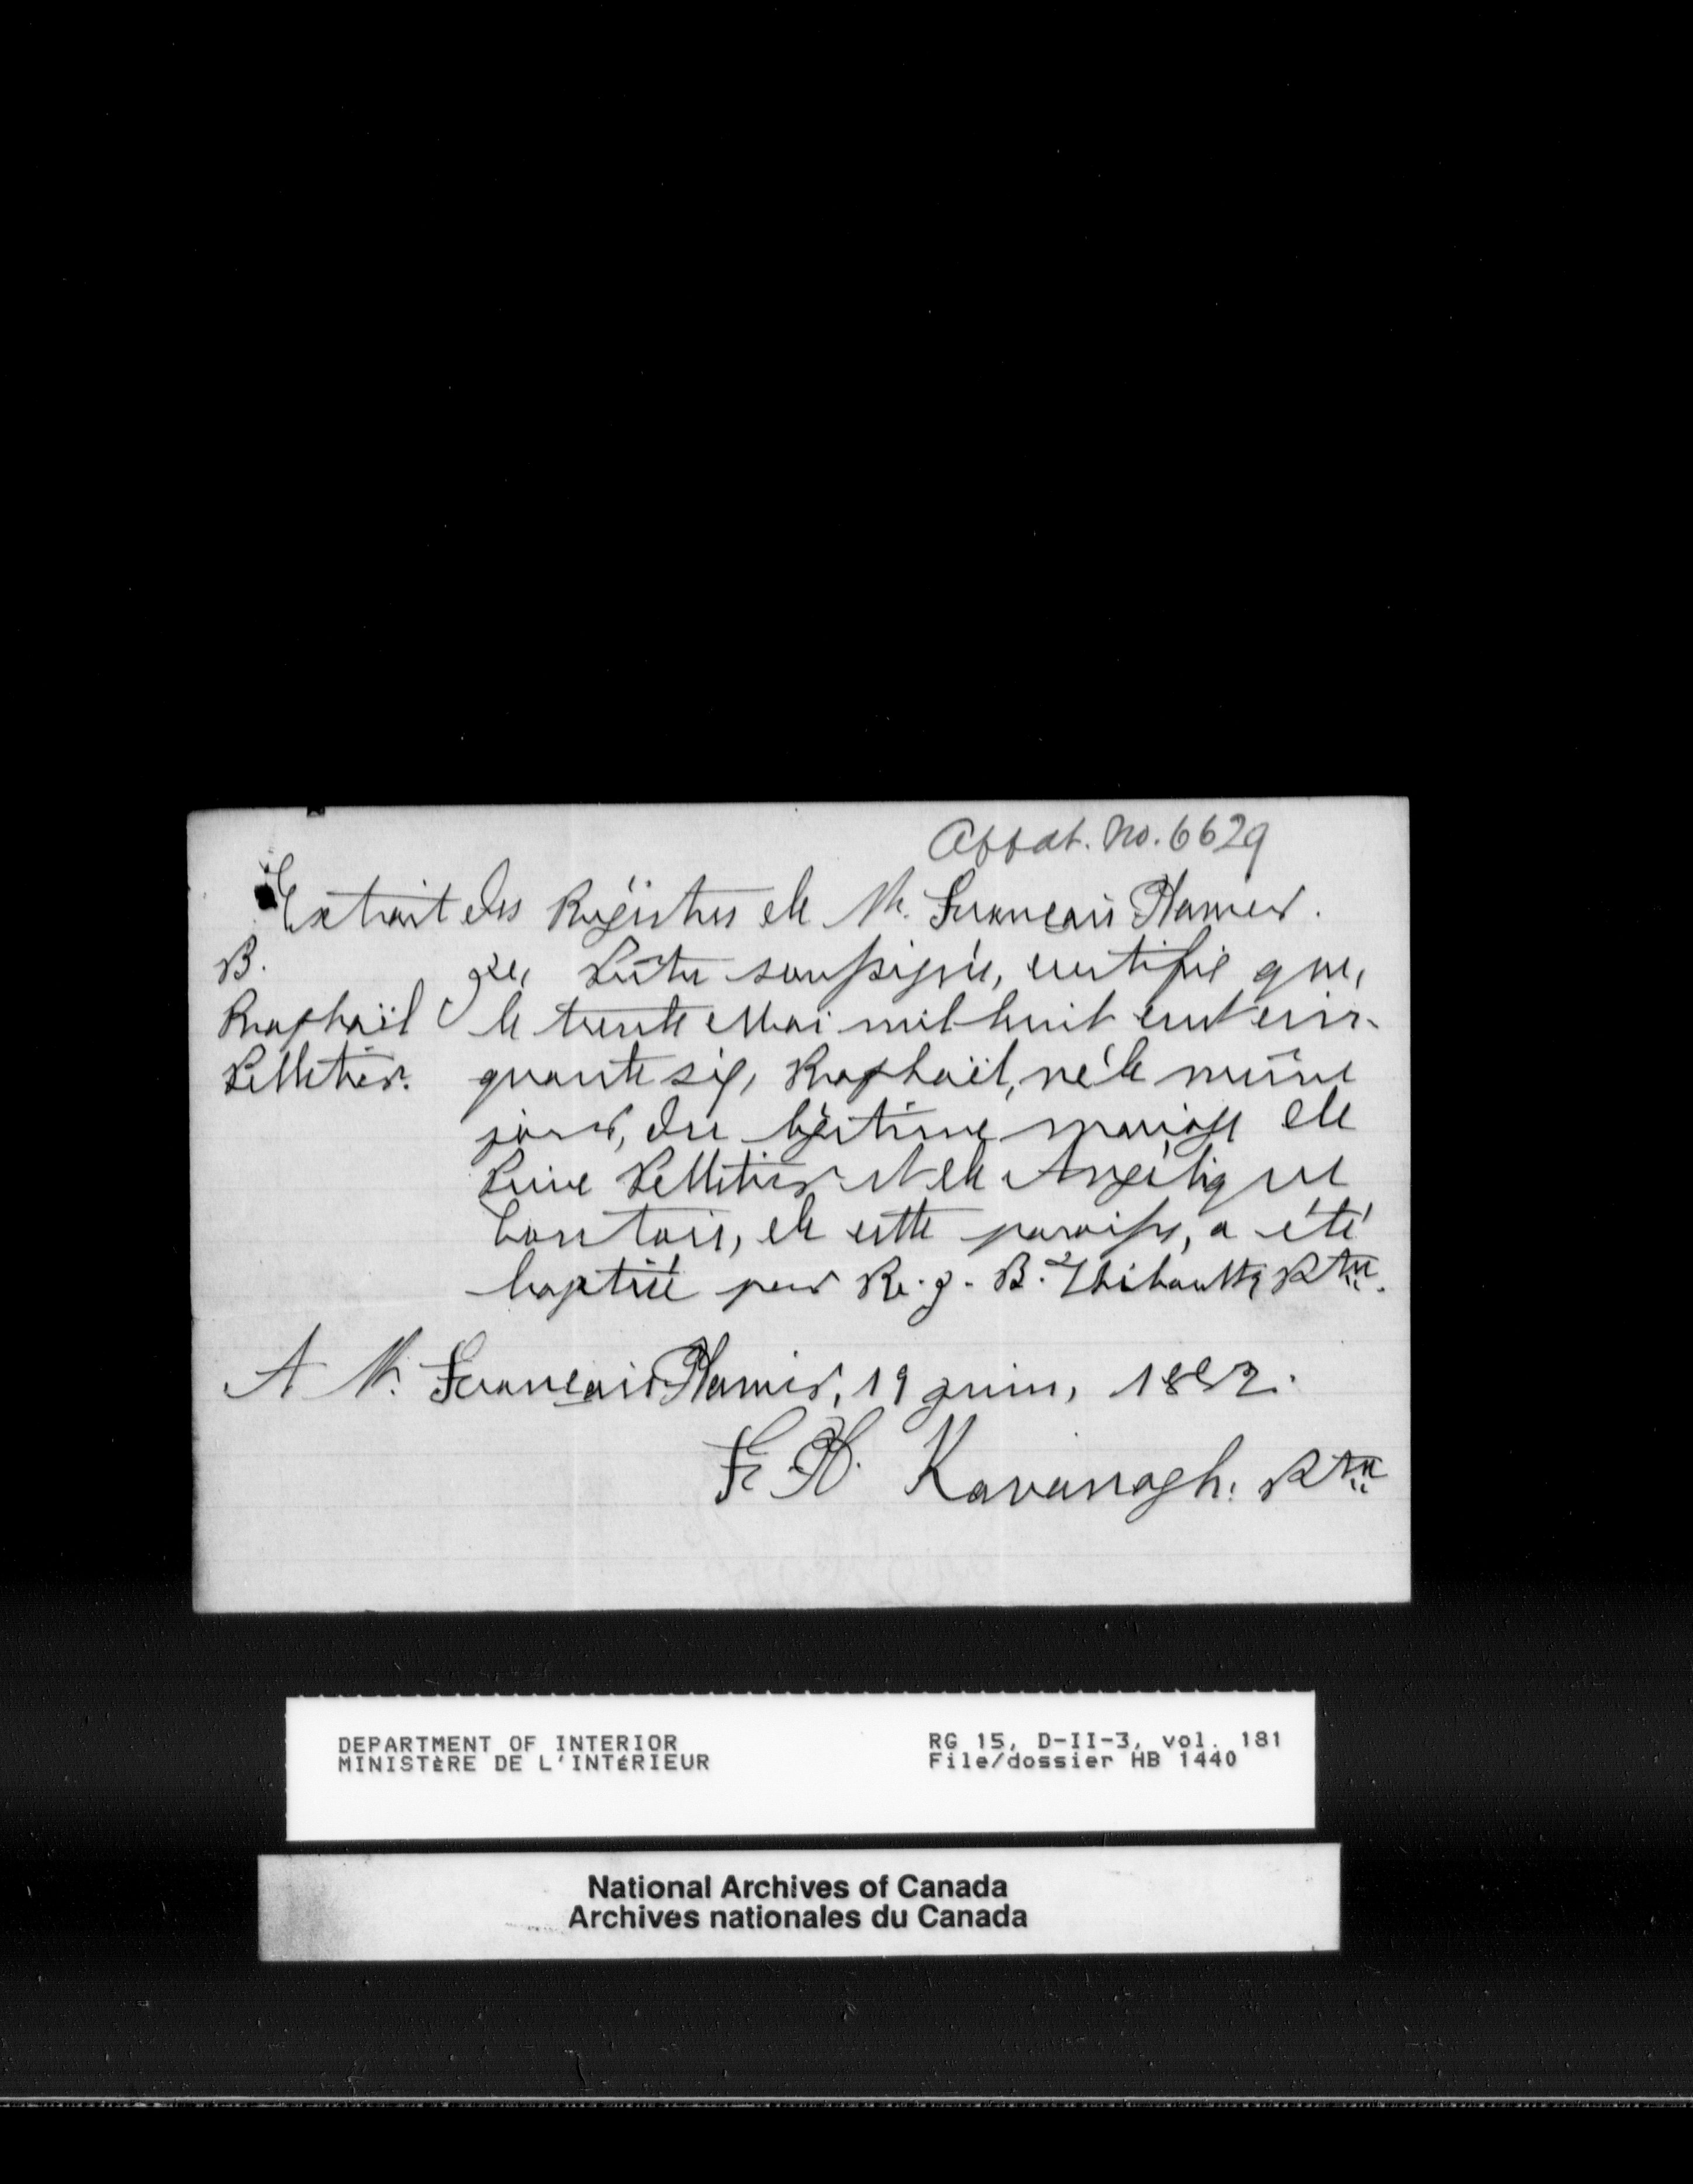 Affdt. No. 6629
Extrait des Régistres de St. François Xavier.
B.
Raphaël
Pelletier.
Je, Prêtre soussigné, certifie que,
le trente Mai mil huit cent cin-
quante six, Raphaël, né le même
jour, du légitime mariage de
Pierre Pelletier et de Angélique
de cette paroisse, a été
baptisé par R. J. B. Thibault, Ptre.
A St. François Xavier, 19 juin, 1882.
F. X. Kavanagh. Ptre
DEPARTMENT OF INTERIOR
MINISTÈRE DE L'INTÉRIEUR
RG 15, D-II-3, vol. 181
File/dossier HB 1440
National Archives of Canada
Archives nationales du Canada